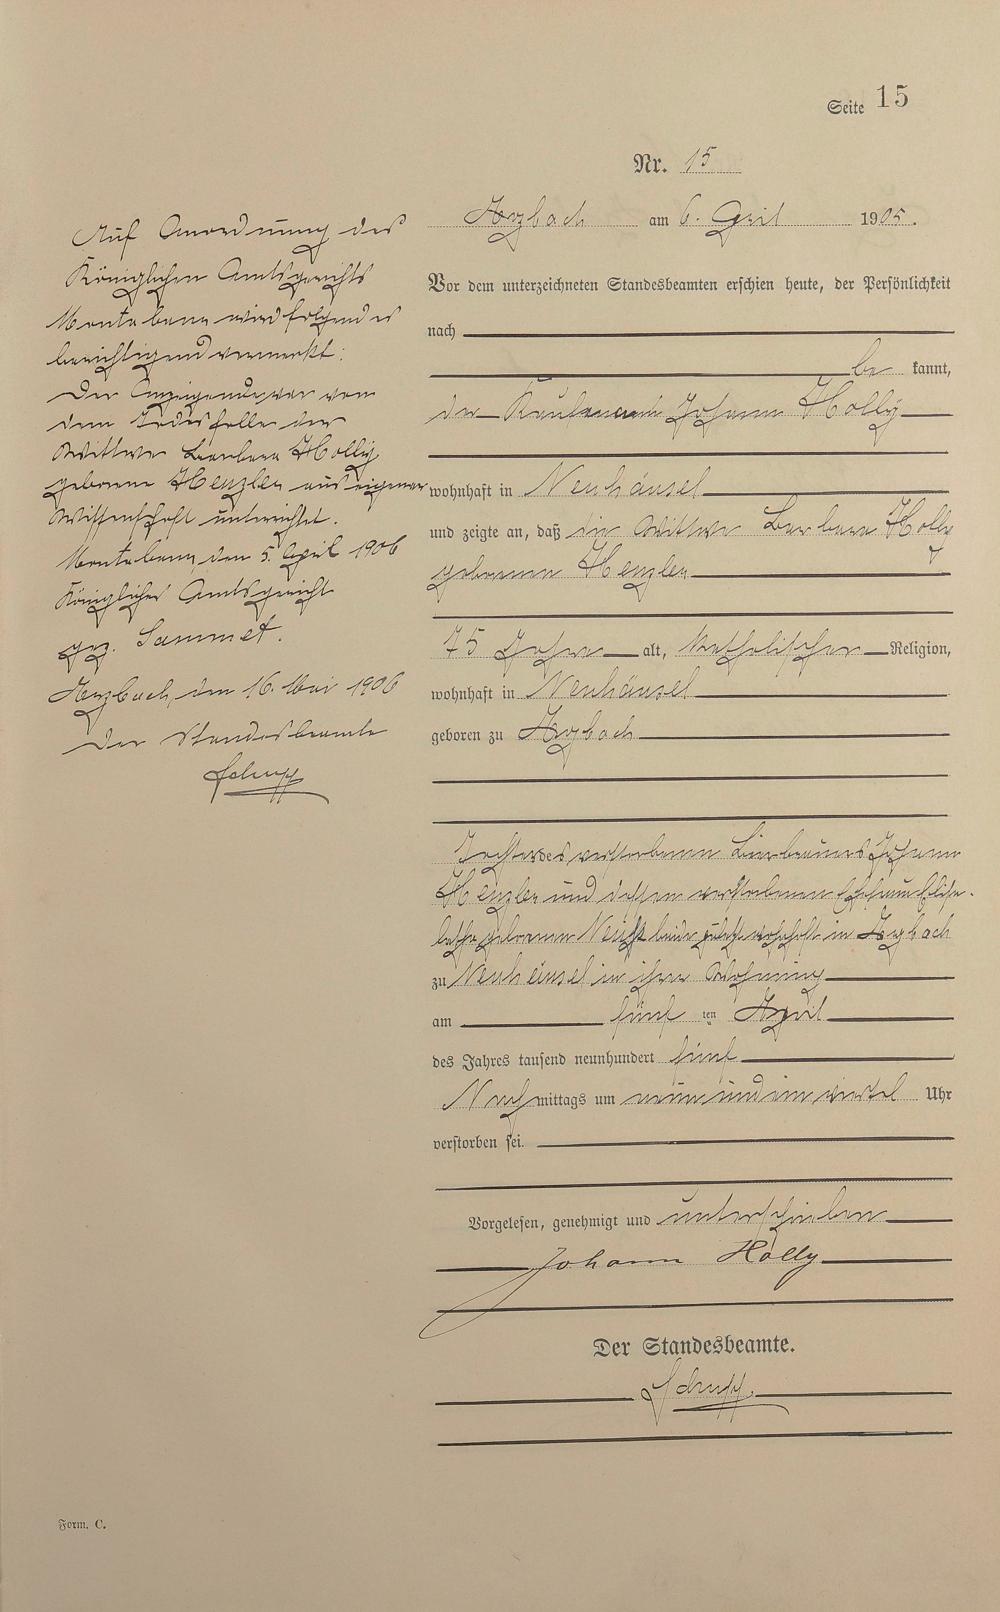 Seite 15
Nr. 15
Arzbach am 6. April 1905.
Vor dem unterzeichneten Standesbeamten erschien heute, der Persönlichkeit
nach
be kannt,
der Kaufmann Johann Holly
wohnhaft in Neuhäusel
und zeigte an, daß die Wittwe Barbara Holly
geborene Henzler
75 Jahre alt, katholischer Religion,
wohnhaft in Neuhäusel
geboren zu Arzbach
Tochter des verstorbenen Bierbrauers Johann
Henzler und dessen verstorbenen Ehefrau Elisa-
betha geborene beide zuletzt wohnhaft in Arzbach
zu Neuhäusel in ihrer Wohnung
am fünf ten April
des Jahres tausend neunhundert fünf
Nachmittags um neun und ein viertel Uhr
verstorben sei.
Vorgelesen, genehmigt und unterschrieben
Johann Holly
Der Standesbeamte.
Schupp
Auf Anordnung des
Königlichen Amtsgerichts
Montabaur wird folgendes
berichtigend vermerkt:
Der Anzeigende war von
dem Todesfalle der
Wittwe Barbara Holly
geborene Henzler aus eigener
Wissenschaft unterrichtet.
Montabaur, den 5. April 1906
Königliches Amtsgericht
gez. Sammet.
Arzbach, den 16. Mai 1906
Der Standesbeamte
Schupp
Form. C.